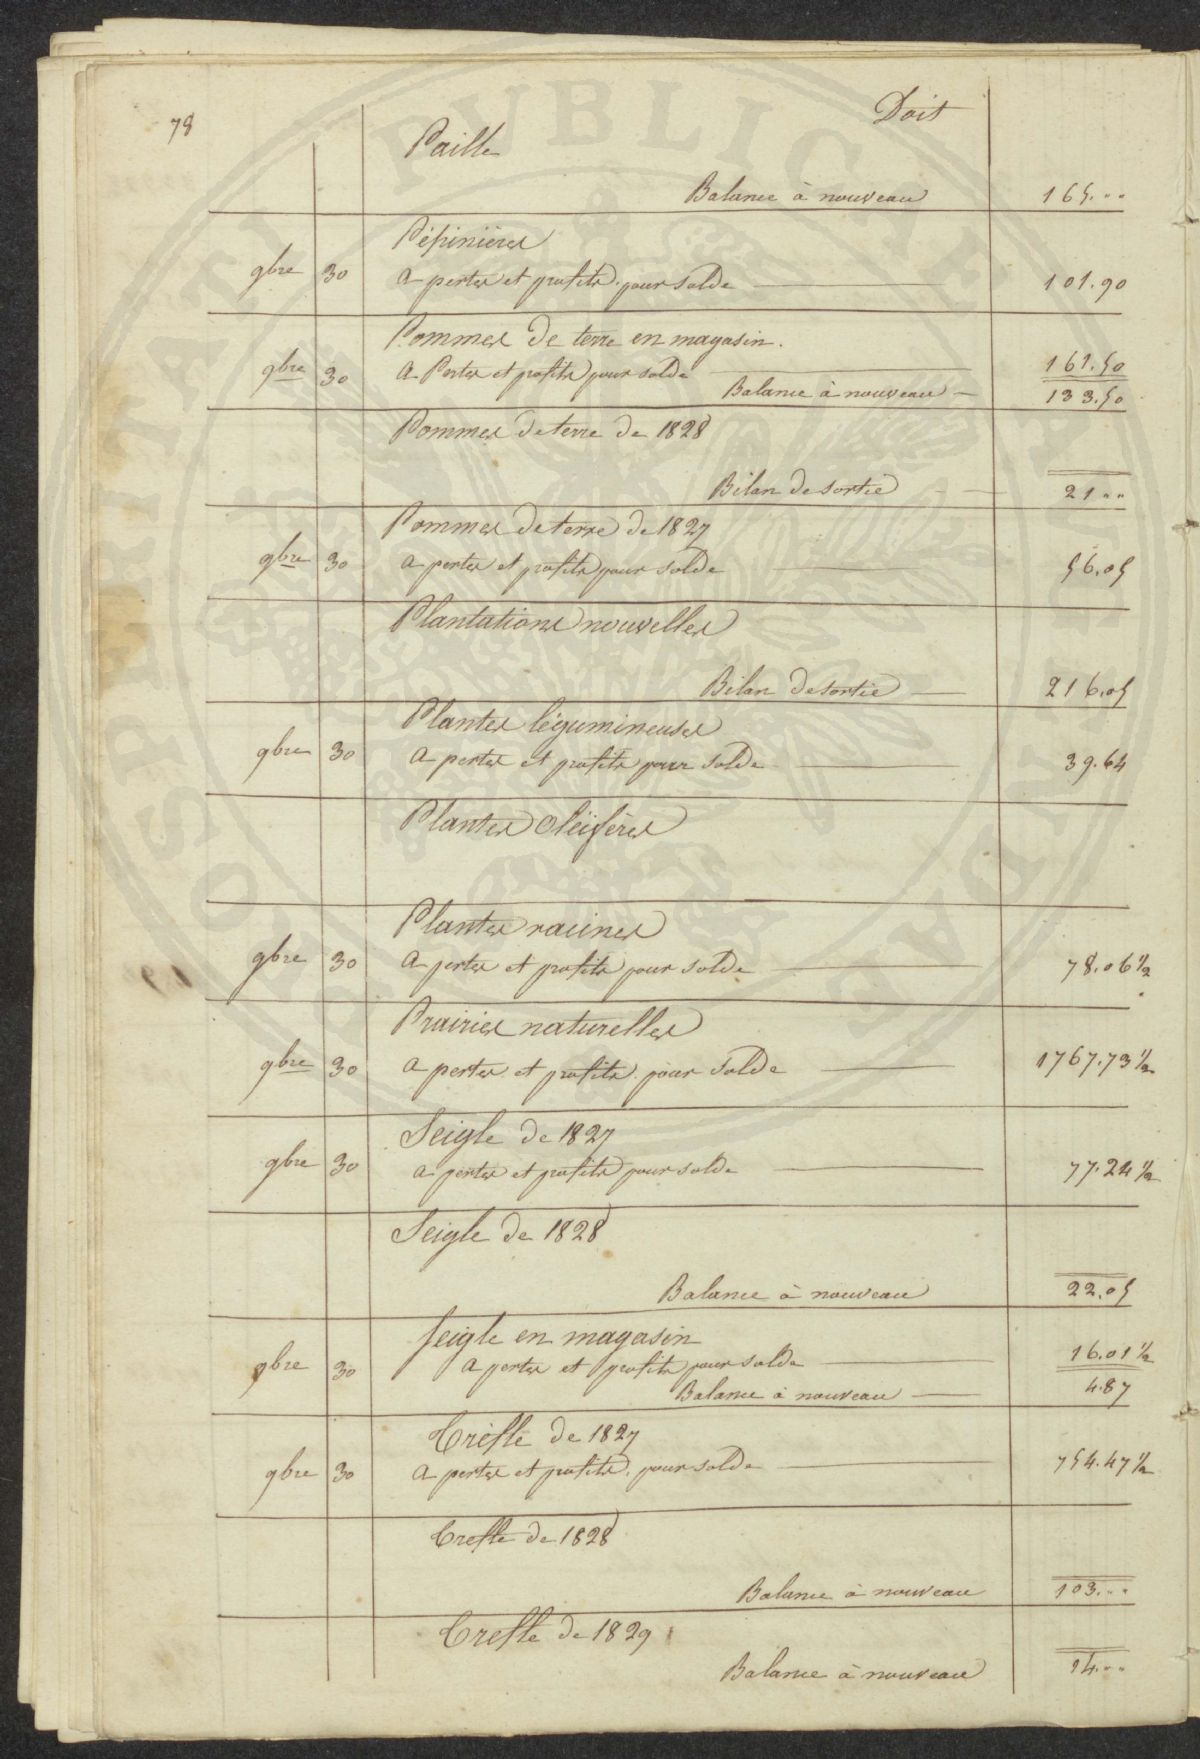 78
Doit
Paille
Balance à nouveau 165. " "
Pépinières
9bre 30 a pertes et profits pour solde 101.90
Pommes de terre en magasin.
9bre 30 a Pertes et profits pour solde 161.50
Balance à nouveau 133.50
Pommes de terre de 1828
Bilan de sortie 21 " "
Pommes de terre de 1827
9bre 30 a pertes et profits pour solde 56.05
Plantations nouvelles
Bilan de sortie 216.05
Plantes légumineuses
9bre 30 a pertes et profits pour solde 39.64
Plantes oleifères
Plantes racines
9bre 30 a pertes et profits pour solde 78.06 1/2
Prairies naturelles
9bre 30 a pertes et profits pour solde 1767.73 1/2
Seigle de 1827
9bre 30 a pertes et profits pour solde 77.24 1/2
Seigle de 1828
Balance à nouveau 22.05
Seigle en magasin
9bre 30 a pertes et profits pour solde 16.01 1/2
Balance à nouveau 4.87
Trèfle de 1827
9bre 30 a pertes et profits pour solde 754.47 1/2
Trefle de 1828
Balance à nouveau 103. " "
Trefle de 1829
Balance à nouveau 14. " "